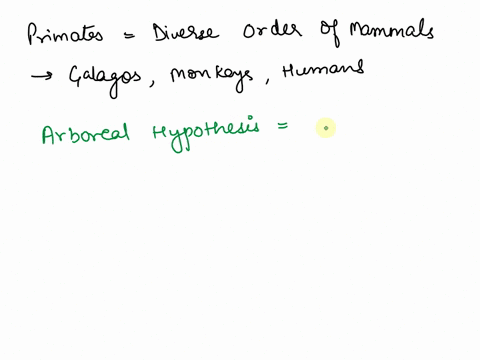 Primates = Diverse Order of Mammals
→ Galagos, Monkeys, Humans
Arboreal Hypothesis =